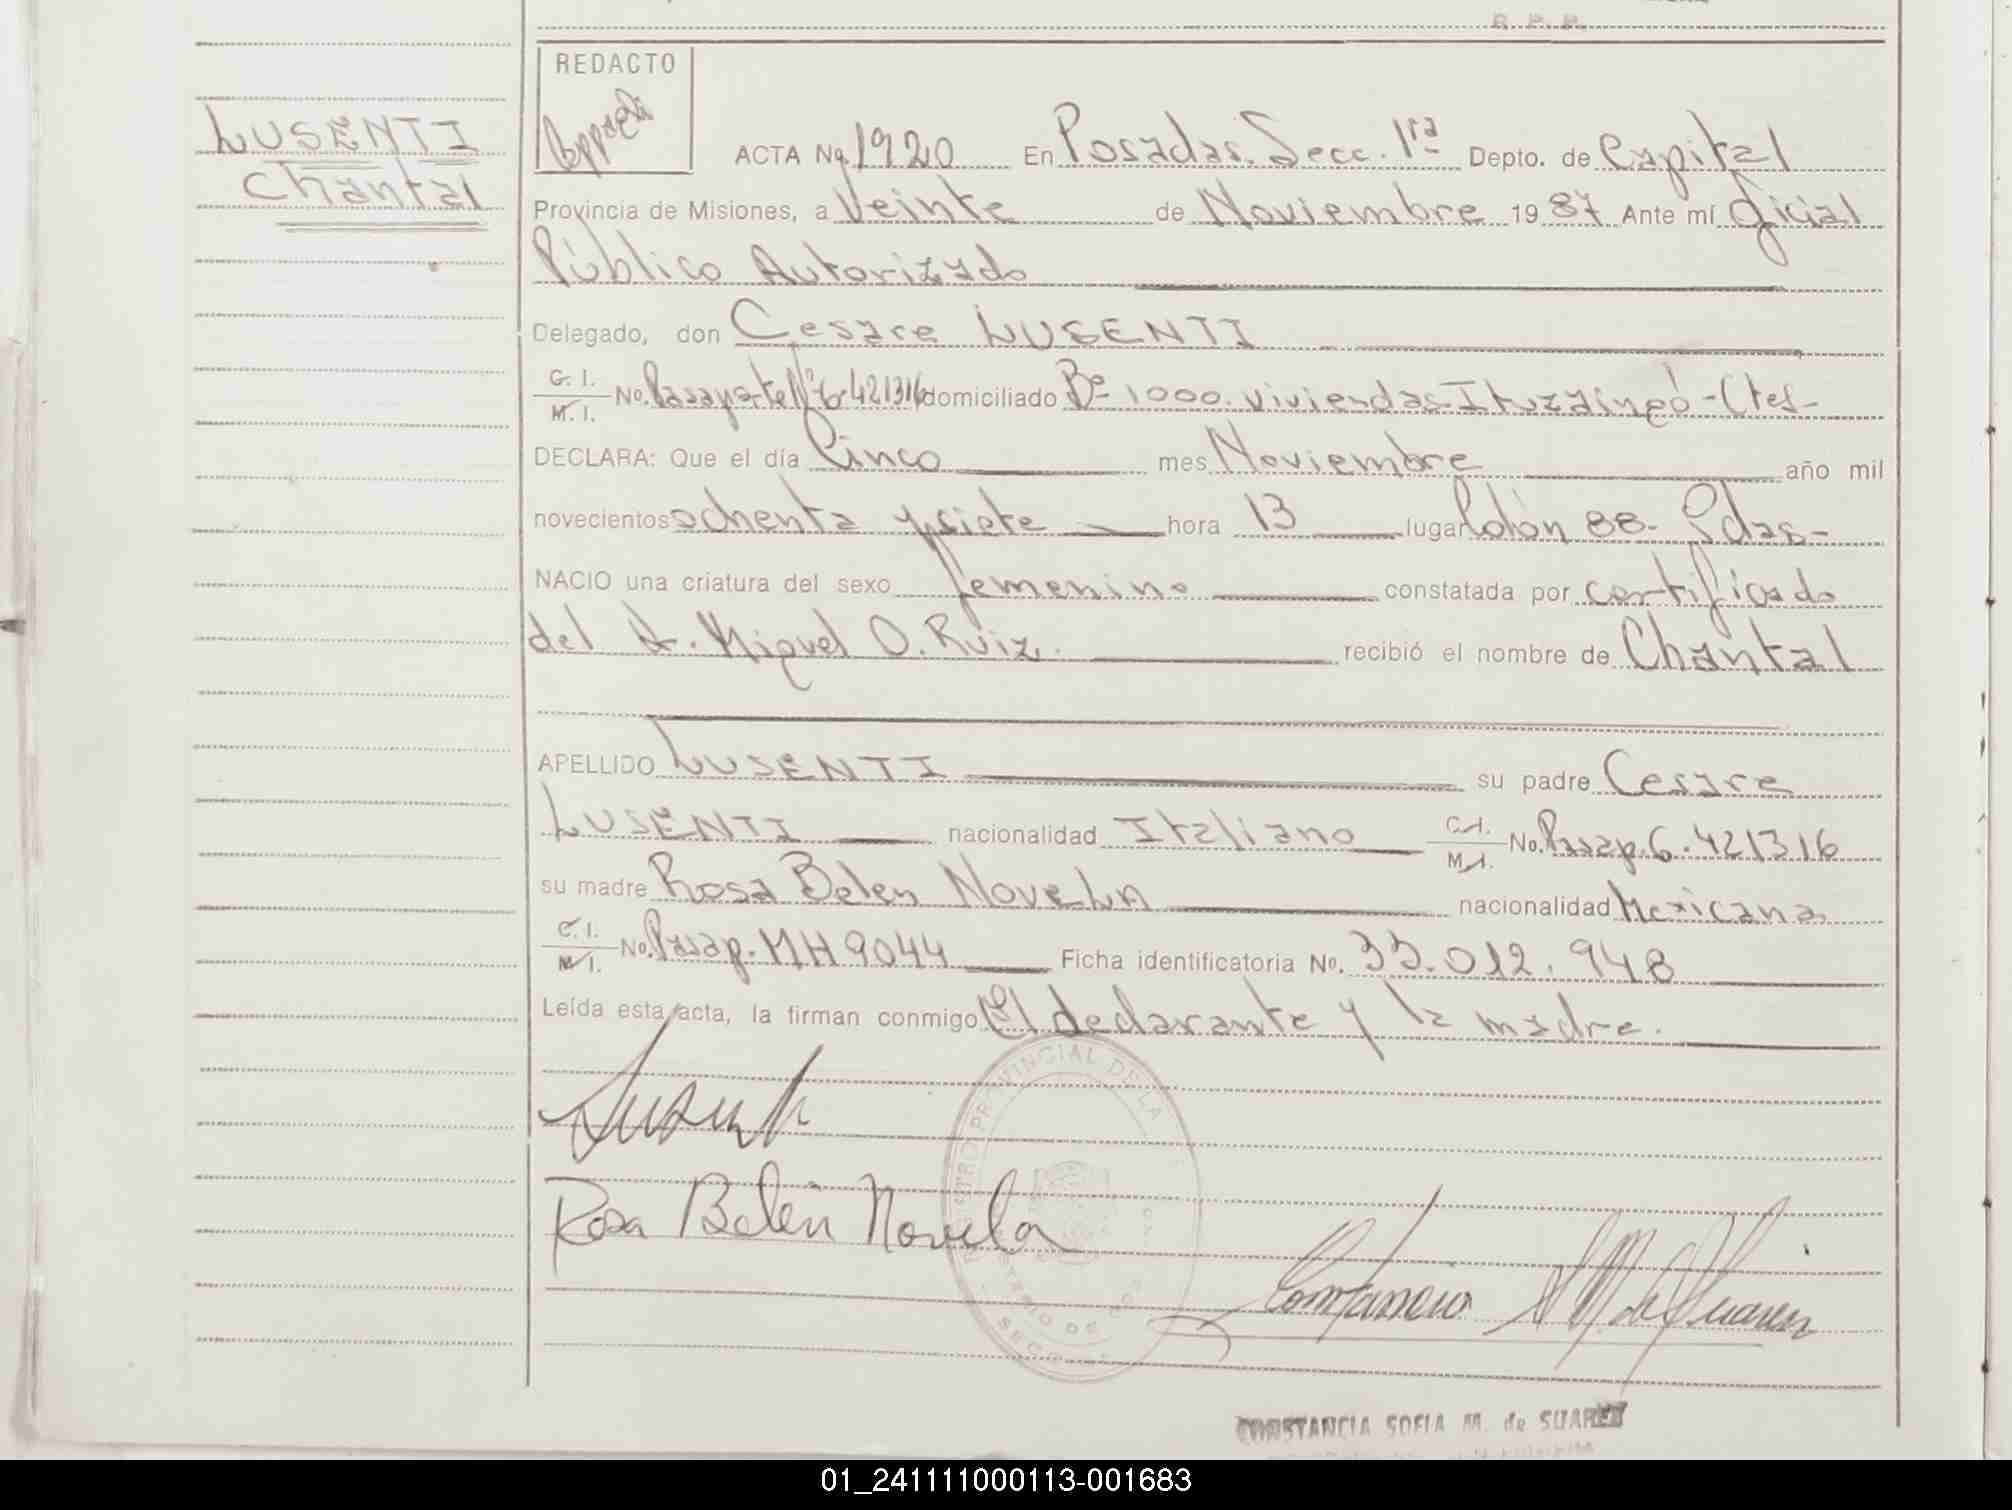 R. P. P.
REDACTO
LUSENTI
Chantal
ACTA No. 1920 En Posadas. Secc. 1ra Depto. de Capital
Provincia de Misiones, a Veinte de Noviembre 1987 Ante mí Oficial
Público Autorizado
Delegado, don Cesare LUSENTI
C. I. / M. I. No. Pasaporte Nº 6.421316 domiciliado Bº 1000. viviendas-Ituzaingó-Ctes-
DECLARA: Que el día Cinco mes Noviembre año mil
novecientos ochenta y siete hora 13 lugar Colón 88. Pdas-
NACIO una criatura del sexo femenino constatada por certificado
del Dr. Miguel O. Ruiz. recibió el nombre de Chantal
APELLIDO LUSENTI su padre Cesare
LUSENTI nacionalidad Italiano C.I. / M.I. No. Pasap. 6.421316
su madre Rosa Belen NoveLA nacionalidad Mexicana
C. I. / M. I. No. Pasap. MH 9044 Ficha identificatoria No. 33.012.948
Leída esta acta, la firman conmigo El declarante y la madre.
Lusenti
REGISTRO PROVINCIAL DE LA
Rosa Belén Novela
Constancia S M. de Suarez
CONSTANCIA SOFIA M. de SUAREZ
01_241111000113-001683